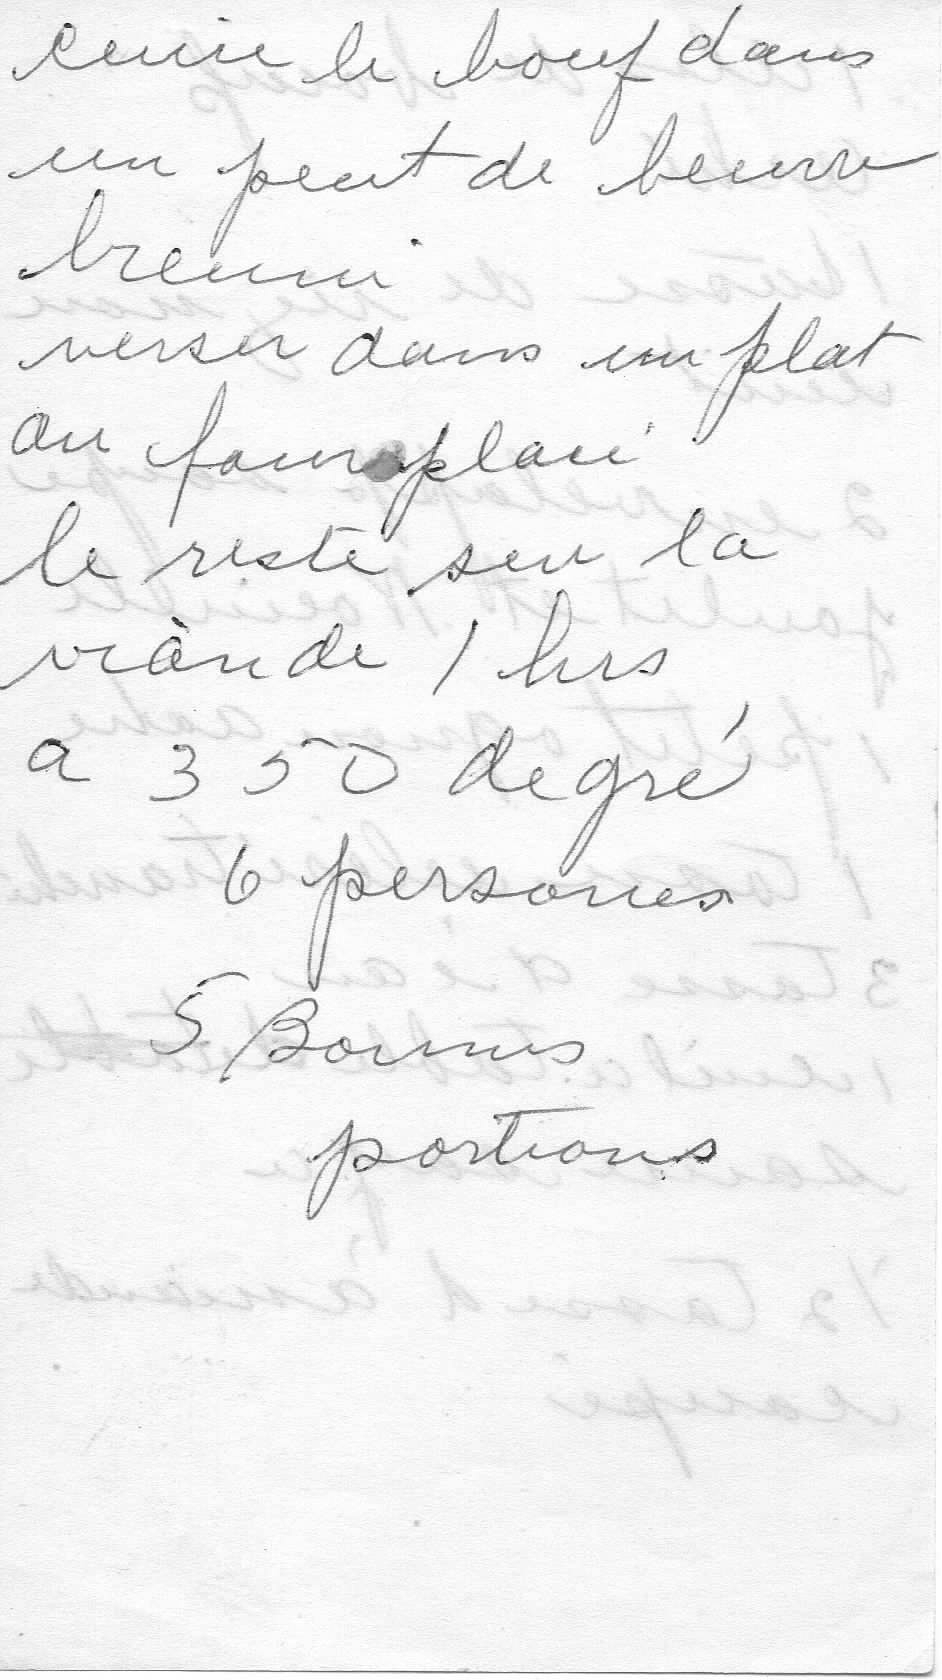 cuire le bouf dans
un peut de beurre
breuni
verser dans un plat
au four placé
le reste sur la
viande 1 hrs
a 350 degré
6 persones
5 Bonnes
portions